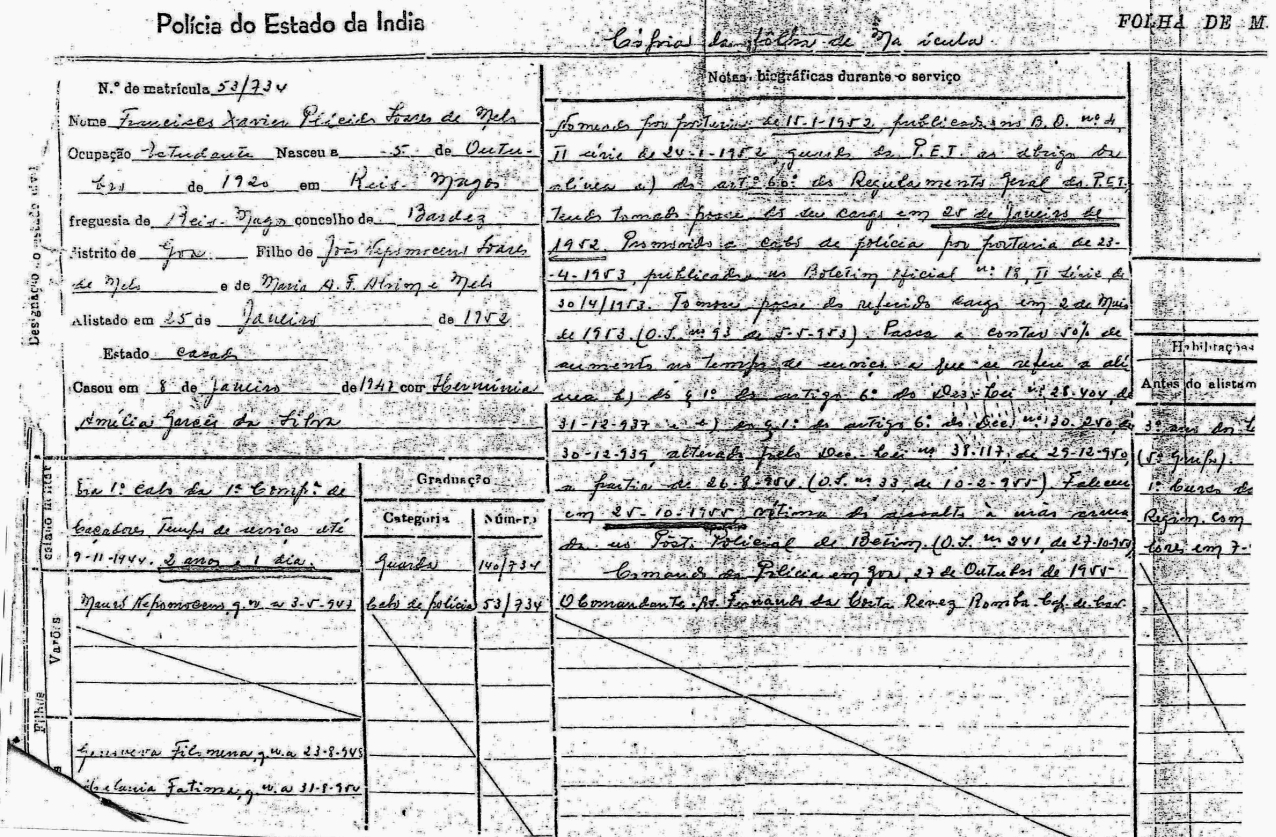 Polícia do Estado da India
FOLHA DE M
Cópia da fôlha de Ma ícula
N.º de matrícula 53/734
Nome Francisco Xavier Plácido Soares de Melo
Ocupação Estudante Nasceu a 5 de Outu-
bro de 1920 em Reis-Magos
freguesia de Reis-Magos concelho de Bardez
distrito de Goa. Filho de João Nepomoceno Soares
de Melo e de Maria A. F. Alvim e Melo
Alistado em 25 de Janeiro de 1952
Estado casado
Casou em 8 de Janeiro de 1947 com Hermínia
Amélia Garcês da Silva
Designação o estado civil
Notas biográficas durante o serviço
Nomeado por portaria de 15-1-1952, publicada no B.O. nº 4,
II série de 24-1-1952, guarda da P.E.I. ao abrigo da
alínea a) do artº 60º do Regulamento Geral da P.E.I.
tendo tomado posse do seu cargo em 25 de Janeiro de
1952. Promovido a cabo de polícia por portaria de 23-
-4-1953, publicada no Boletim Oficial nº 18, II Série de
30/4/1953. Tomou posse do referido cargo em 2 de Maio
de 1953. (O.S. nº 93 de 5-5-953). Passa a contar 50% de
aumento no tempo de serviço a que se refere a alí
nea b) do § 1º do artigo 6º do Dec-Lei nº 28.404, de
31-12-937 e b) do § 1º do artigo 6º do Dec. nº 30.250, de
30-12-939, alterado pelo Dec-Lei nº 38.117, de 29-12-950,
a partir de 26-8-954 (O.S. nº 33, de 10-2-955). Faleceu
em 25-10-1955 vítima de assalto à mão arma
da no Posto Policial de Betim. (O.S. nº 241, de 27-10-955)
Comando da Polícia em Goa, 27 de Outubro de 1955
O Comandante. As. Fernando da Costa Revez Romba. Cap. de Cav.
Era 1º cabo da 1ª Compª de
Caçadores Tempo de serviço até
9-11-1944. 2 anos e 1 dia.
Graduação
Categoria Número
Guarda 140/734
Cabo de polícia 53/734
Filhos
Varões
Mauró Nepomoceno, q. n. a 3-5-947
Genoveva Filomena, q. n. a 23-8-948
Fatima, q. n. a 31-8-954
Habilitações
Antes do alistam
3º ano do
(5º grupo).
1º Curso de
Region. com
em 7-